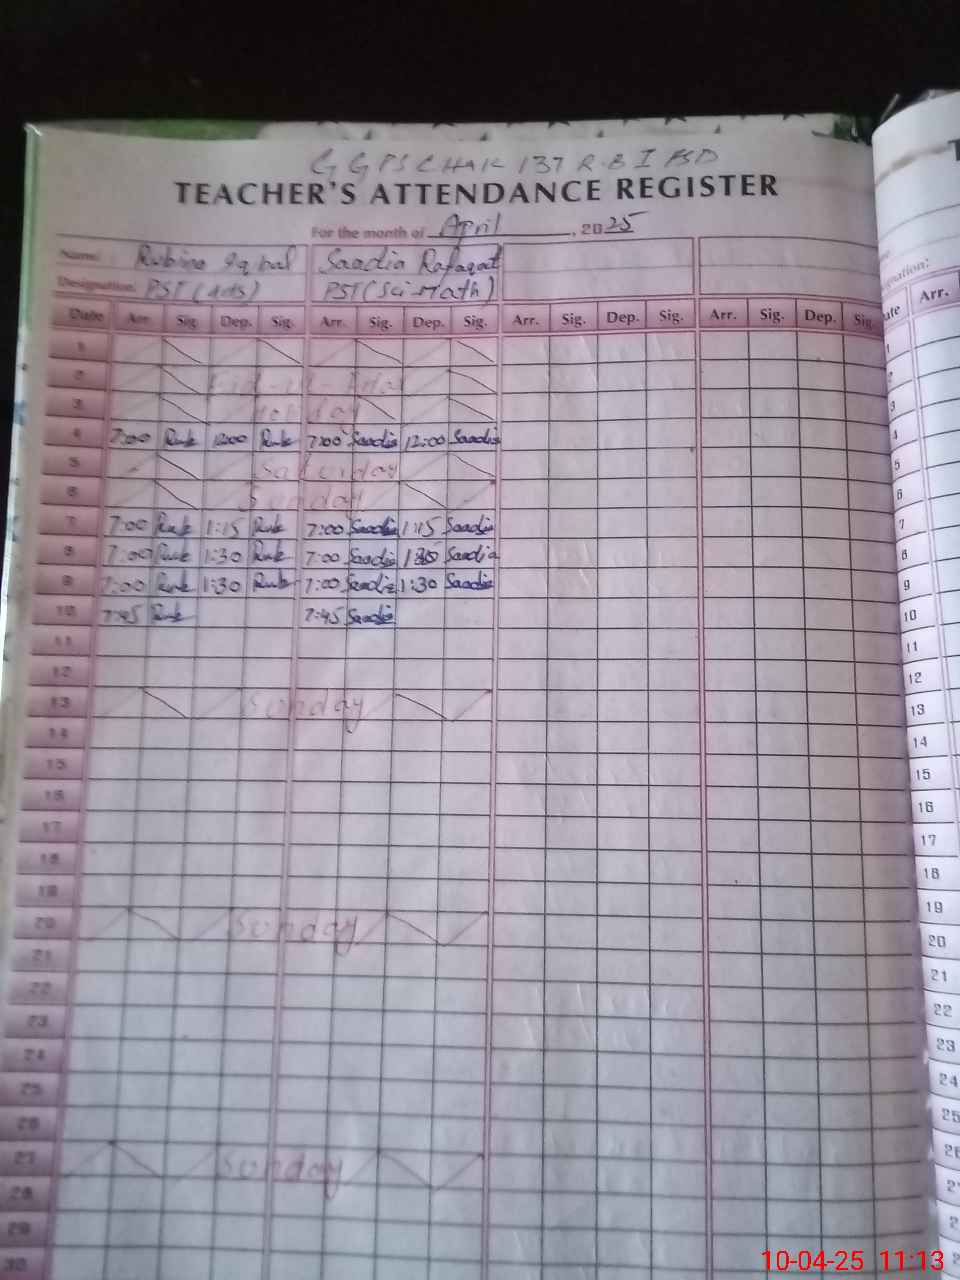 G G P S CHAK 137 R.B I FSD
TEACHER'S ATTENDANCE REGISTER
For the month of April, 2025
Name: Rubina Iqbal Saadia Rafaqat
Designation: PST (Arts) PST (Sci-Math)
Date Arr. Sig. Dep. Sig. Arr. Sig. Dep. Sig. Arr. Sig. Dep. Sig. Arr. Sig. Dep. Sig.
1
2 Eid-ul-
3 Holiday
4 7:00 Rub 12:00 Rub 7:00 Saadia 12:00 Saadia
5 Saturday
6 Sunday
7 7:00 Rub 1:15 Rub 7:00 Saadia 1:15 Saadia
8 7:00 Rub 1:30 Rub 7:00 Saadia Saadia
9 7:00 Rub 1:30 Rub 7:00 Saadia 1:30 Saadia
10 7:45 Rub 7:45 Saadia
11
12
13 Sunday
14
15
16
17
18
19
20 Sunday
21
22
23
24
25
26
27 Sunday
28
29
30
T
Designation:
Arr.
3
4
5
6
7
8
9
10
11
12
13
14
15
16
17
18
19
20
21
22
23
24
25
10-04-25 11:13